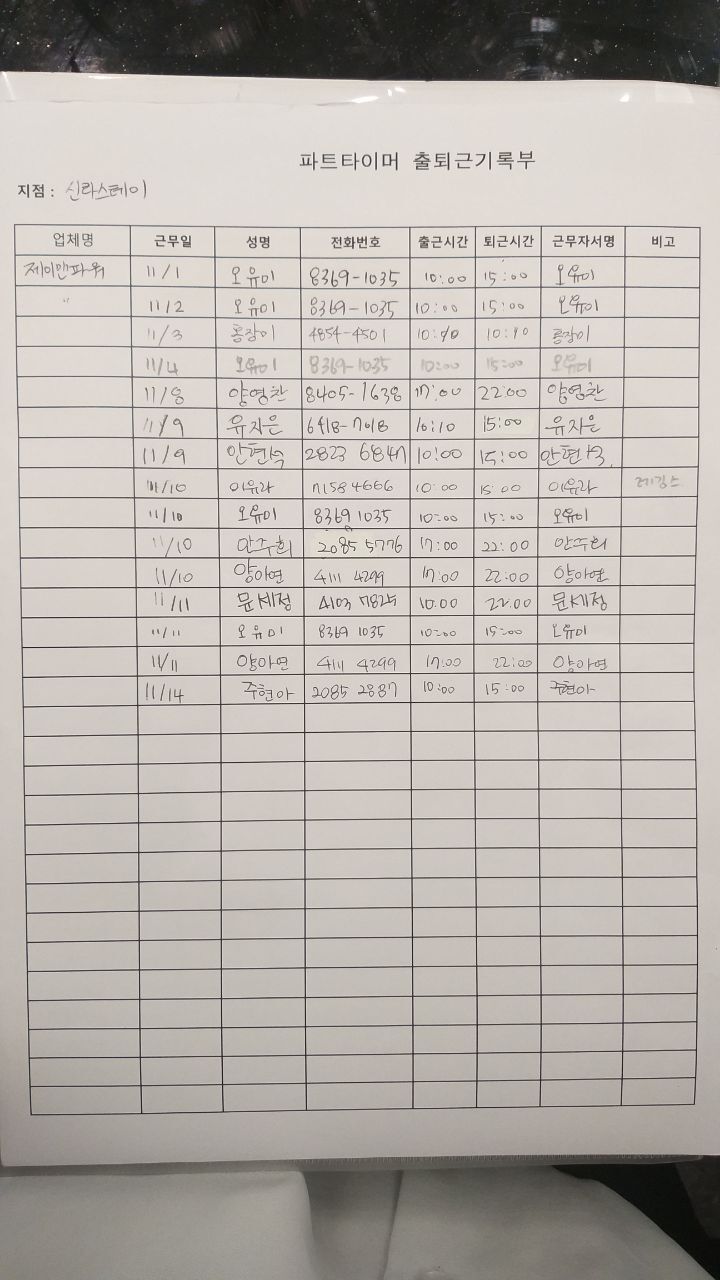 파트타이머 출퇴근기록부
지점 : 신라스테이
업체명 근무일 성명 전화번호 출근시간 퇴근시간 근무자서명 비고
제이앤파워 11/1 오유미 8369-1035 10:00 15:00 오유미
" 11/2 오유미 8369-1035 10:00 15:00 오유미
11/3 4854-4501
11/4 오유미 8369-1035 10:00 15:00 오유미
11/8 양영찬 8405-1638 17:00 22:00 양영찬
11/9 유지은 6418-7018 10:10 15:00 유지은
11/9 안현숙 2823 6847 10:00 15:00 안현숙
11/10 이유라 7158 4666 10:00 15:00 이유라
11/10 오유미 8369 1035 10:00 15:00 오유미
11/10 안주희 2085 5776 17:00 22:00 안주희
11/10 양아연 4111 4299 17:00 22:00 양아연
11/11 문세정 4103 7825 10:00 22:00 문세정
11/11 오유미 8369 1035 10:00 15:00 오유미
11/11 양아연 4111 4299 17:00 22:00 양아연
11/14 주현아 2085 2887 10:00 15:00 주현아